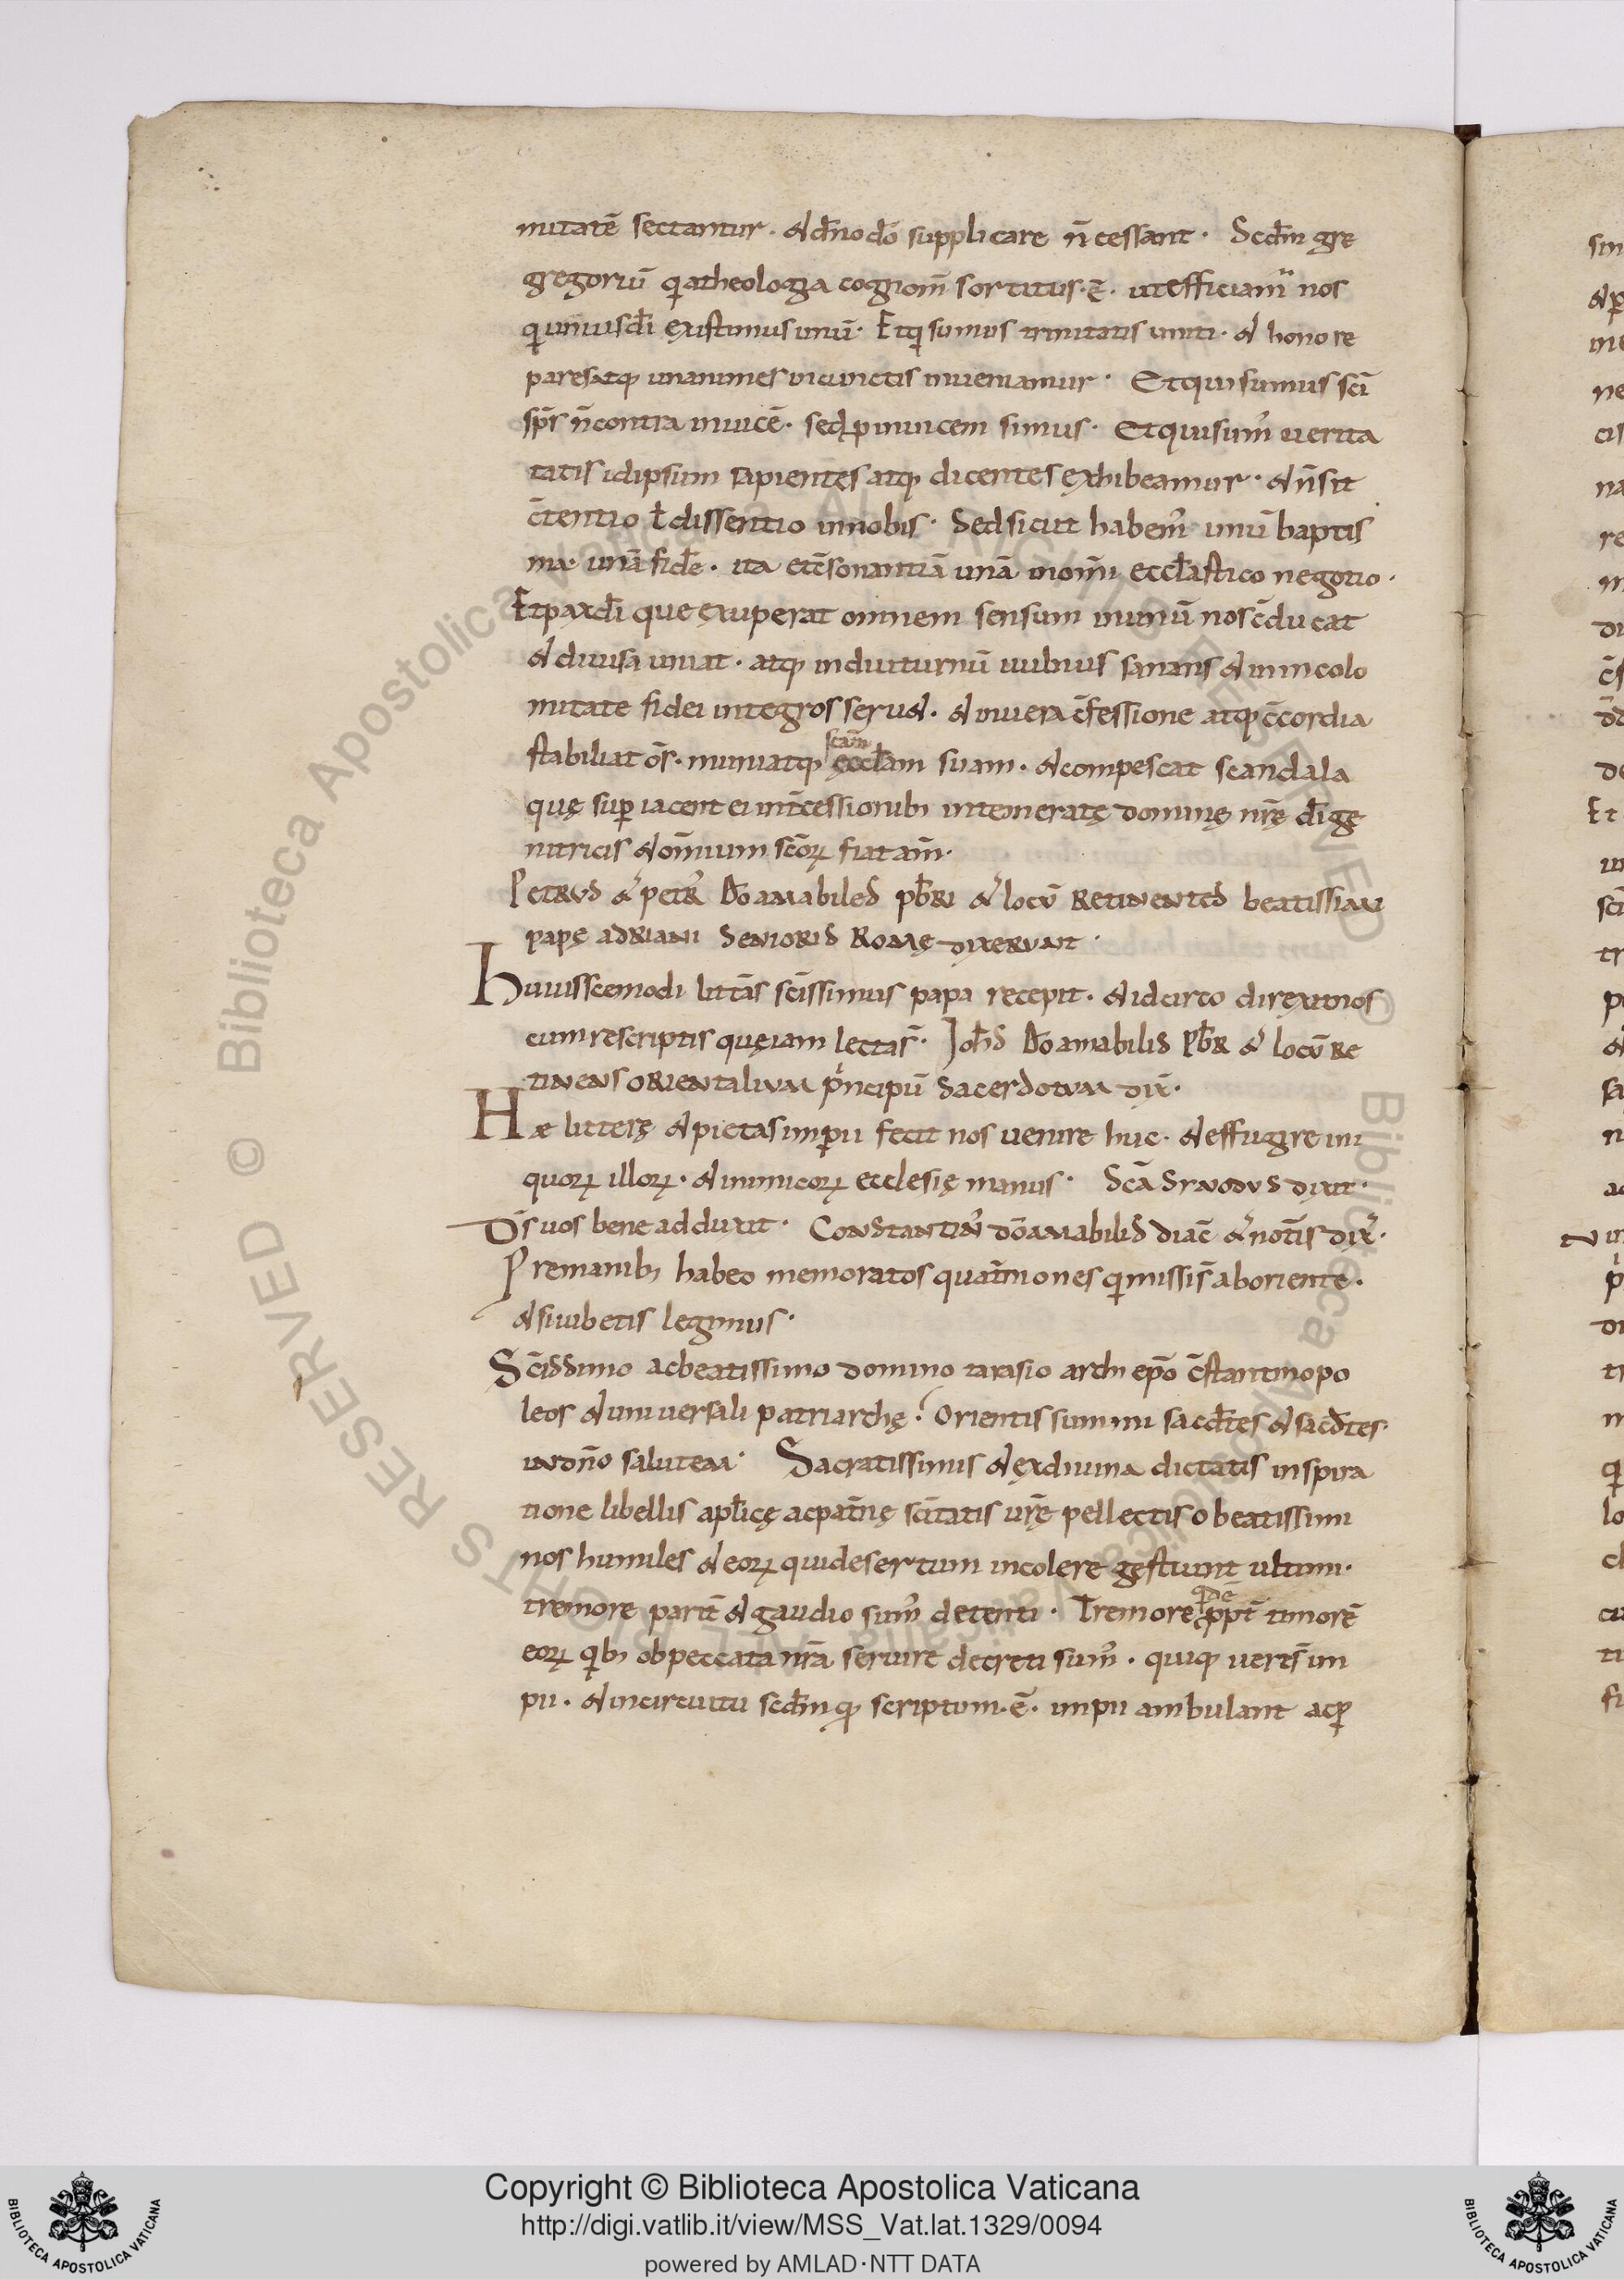 nitatē sectantur. & dn̄o dō supplicare n̄ cessant. Scdm̄ gre
gregoriū qi a theologia cognom̄ sortitus. ē. ut efficiamr̄ nos
qi unius di̅ existimus unū. Et qi sumus trinitatis uniti. & honore
pares atq; unanimes in cunctis inueniamur. Et qui sumus sci̅
sps̄ n̄ contra inuicē. sed p inuicem simus. Et qui sum' uerita
tatis idipsum sapientes atq; dicentes exhibeamur. & n̄ sit
c̄tentio ł dissentio in nobis. Sed sicut habem' unū baptis
ma. unā fidē. ita et c̄sonantiā unā in omn̄i ecclastico negotio.
Et pax di̅ que exuperat omnem sensum in unū nos c̄ducat
& diuisa uniat. atq; in diutturnū uulnus sanans & in incolo
mitate fidei integros seru&. & in uera c̄fessione atq; c̄cordia
stabiliat om̄s. muniatq; scam̄ ęccl̄am suam. & compescat scandala
quę sup iacent ei int̄cessionib; intemeratę dominę nr̄ę di̅ ge
nitricis & om̄ium scōrꝝ fiat am̄.
Petrus & petr' Dō amabiles pb̄ri & locū retinentes beatissimi
papę adriani senioris romę dixerunt.
Huiuiscemodi litt̄as sc̄issimus papa recepit. & idcirco direxit nos
cum rescriptis quę iam lecta s̄. Joh̄s Dō amabilis Pb̄r & locū re
tinens orientalium pi̇ncipū sacerdotum dix̄.
Hæ litterę & pietas imp̄ii fecit nos uenire huc. & effugire ini
quorꝝ illorꝝ. & inimicorꝝ ecclesię manus. Scā Synodus dixit.
Ds̄ uos bene adduxit. Constantin' dō amabilis diac̄ & not̄is dix̄.
Pre manib; habeo memoratos quat̄niones qi missi s̄ ab oriente.
& si iubetis legimus.
Sc̄issimo ac beatissimo domino tarasio archiepō c̄stantinopo
leos & uniuersali patriarchę. Orientis summi sacd̄tes & sacd̄tes.
in dn̄o salutem. Sacratissimus & ex diuina dictatis inspira
tione libellis apl̄icę ac pat̄nę sc̄itatis ur̄ę pellectis o beatissimi
nos humiles & eorꝝ qui desertum incolere gestiunt ultimi.
tremore parit̄ & gaudio sum' detenti. Tremore qidē ppt̄ timorē
eorꝝ qib; ob peccata nr̄a seruire decreti sum'. quiq; uere s̄ im
pii. & in circuitu scdm̄ q; scriptum. ē. impii ambulant ac p